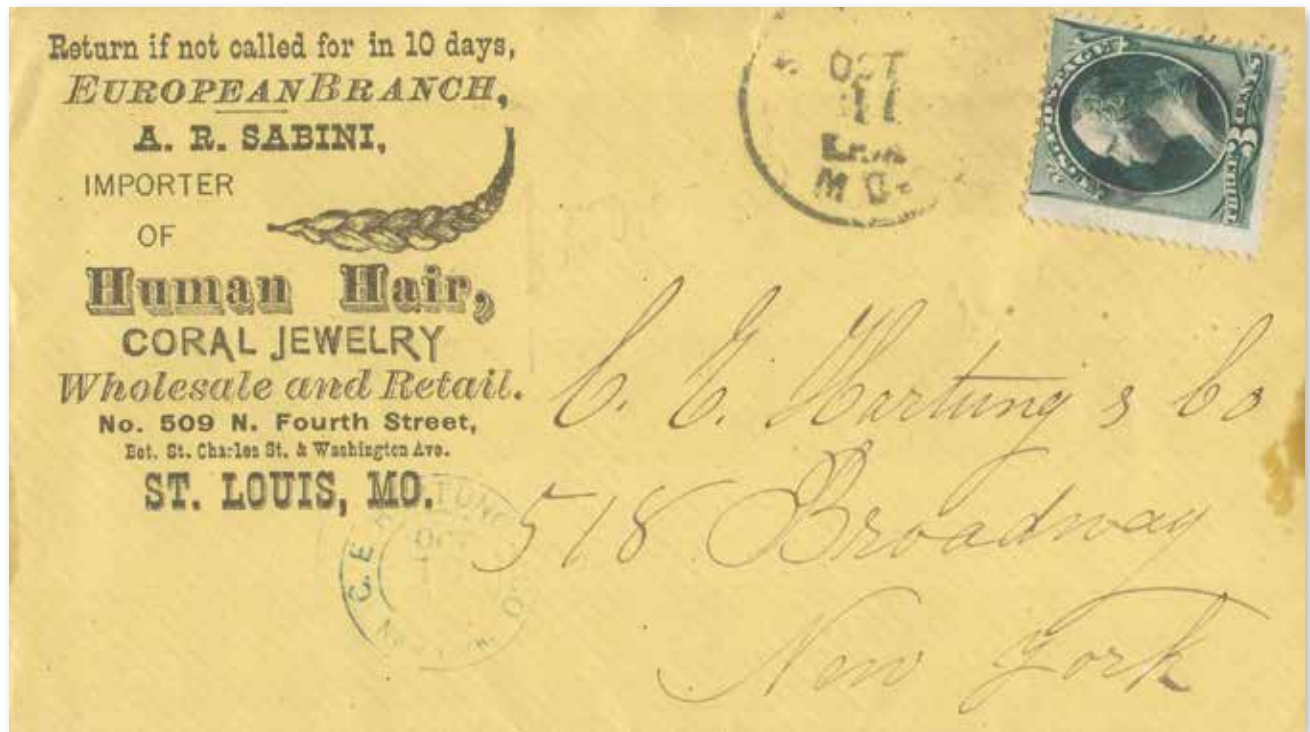 Return if not called for in 10 days,
EUROPEAN BRANCH,
A. R. SABINI,
IMPORTER
OF
Human Hair,
CORAL JEWELRY
Wholesale and Retail.
No. 509 N. Fourth Street,
Bet. St. Charles St. & Washington Ave.
ST. LOUIS, MO.
OCT
11
MO.
U.S. POSTAGE
3 CENTS
C. E. Hartung & Co
518 Broadway
New York
C. E. HARTUNG CO
OCT